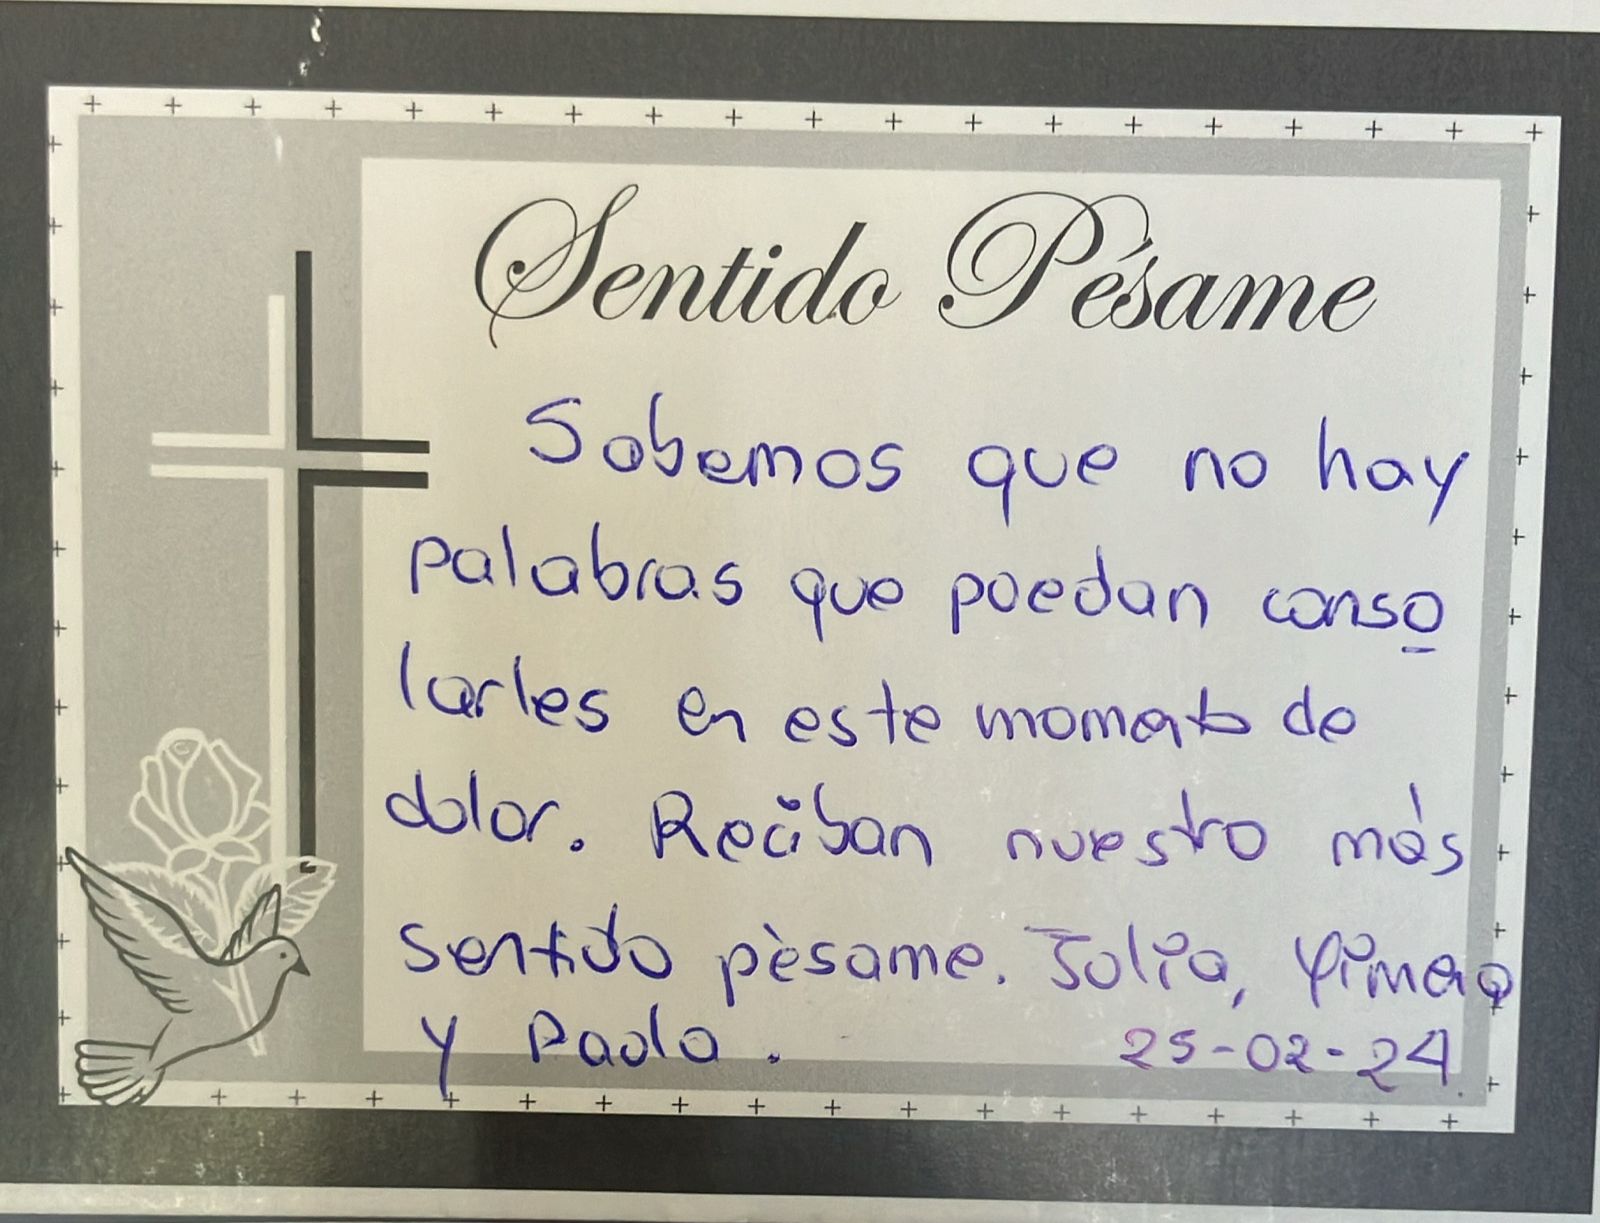 Sentido Pésame
Sabemos que no hay
palabras que puedan conso
larles en este momento de
dolor. Reciban nuestro más
sentido pèsame. Julia, Yimena
y Paola.
25-02-24